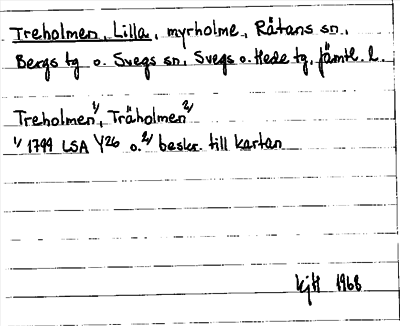 Treholmen, Lilla, myrholme, Råtans sn,
Bergs tg o. Svegs sn, Svegs o. Hede tg, Jämtl. l.
Treholmen 1/, Träholmen 2/
1/ 1799 LSA Y26 o. 2/ beskr. till kartan
1968